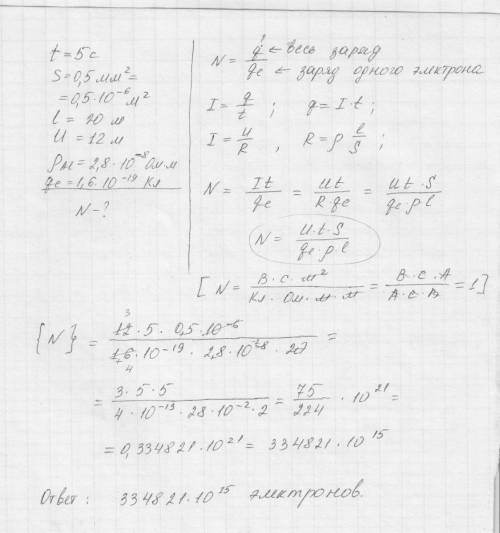 t = 5 с
S = 0,5 мм² =
= 0,5·10⁻⁶ м²
l = 20 м
U = 12 м
ρAl = 2,8·10⁻⁸ Ом·м
qe = 1,6·10⁻¹⁹ Кл
N - ?
N = q/qe ← весь заряд
← заряд одного электрона
I = q/t ; q = I·t ;
I = U/R , R = ρ l/S ;
N = It/qe = Ut/R·qe = U·t·S/qe·ρ·l
N = U·t·S/qe·ρ·l
[ N = В·с·м²/Кл·Ом·м·м = В·с·А/А·с·В = 1 ]
{N} = 12 3·5·0,5·10⁻⁶/1,6 4·10⁻¹⁹·2,8·10⁻⁸·20 =
= 3·5·5/4·10⁻¹⁹·28·10⁻²·2 = 75/224 · 10²¹ =
= 0,334821·10²¹ = 334821·10¹⁵
Ответ : 334821·10¹⁵ электронов.